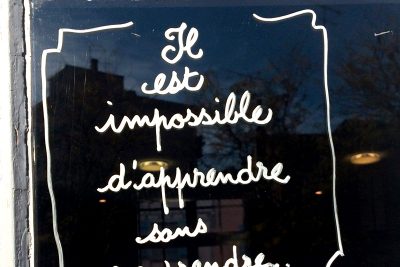 Il
est
impossible
d'apprendre
sans